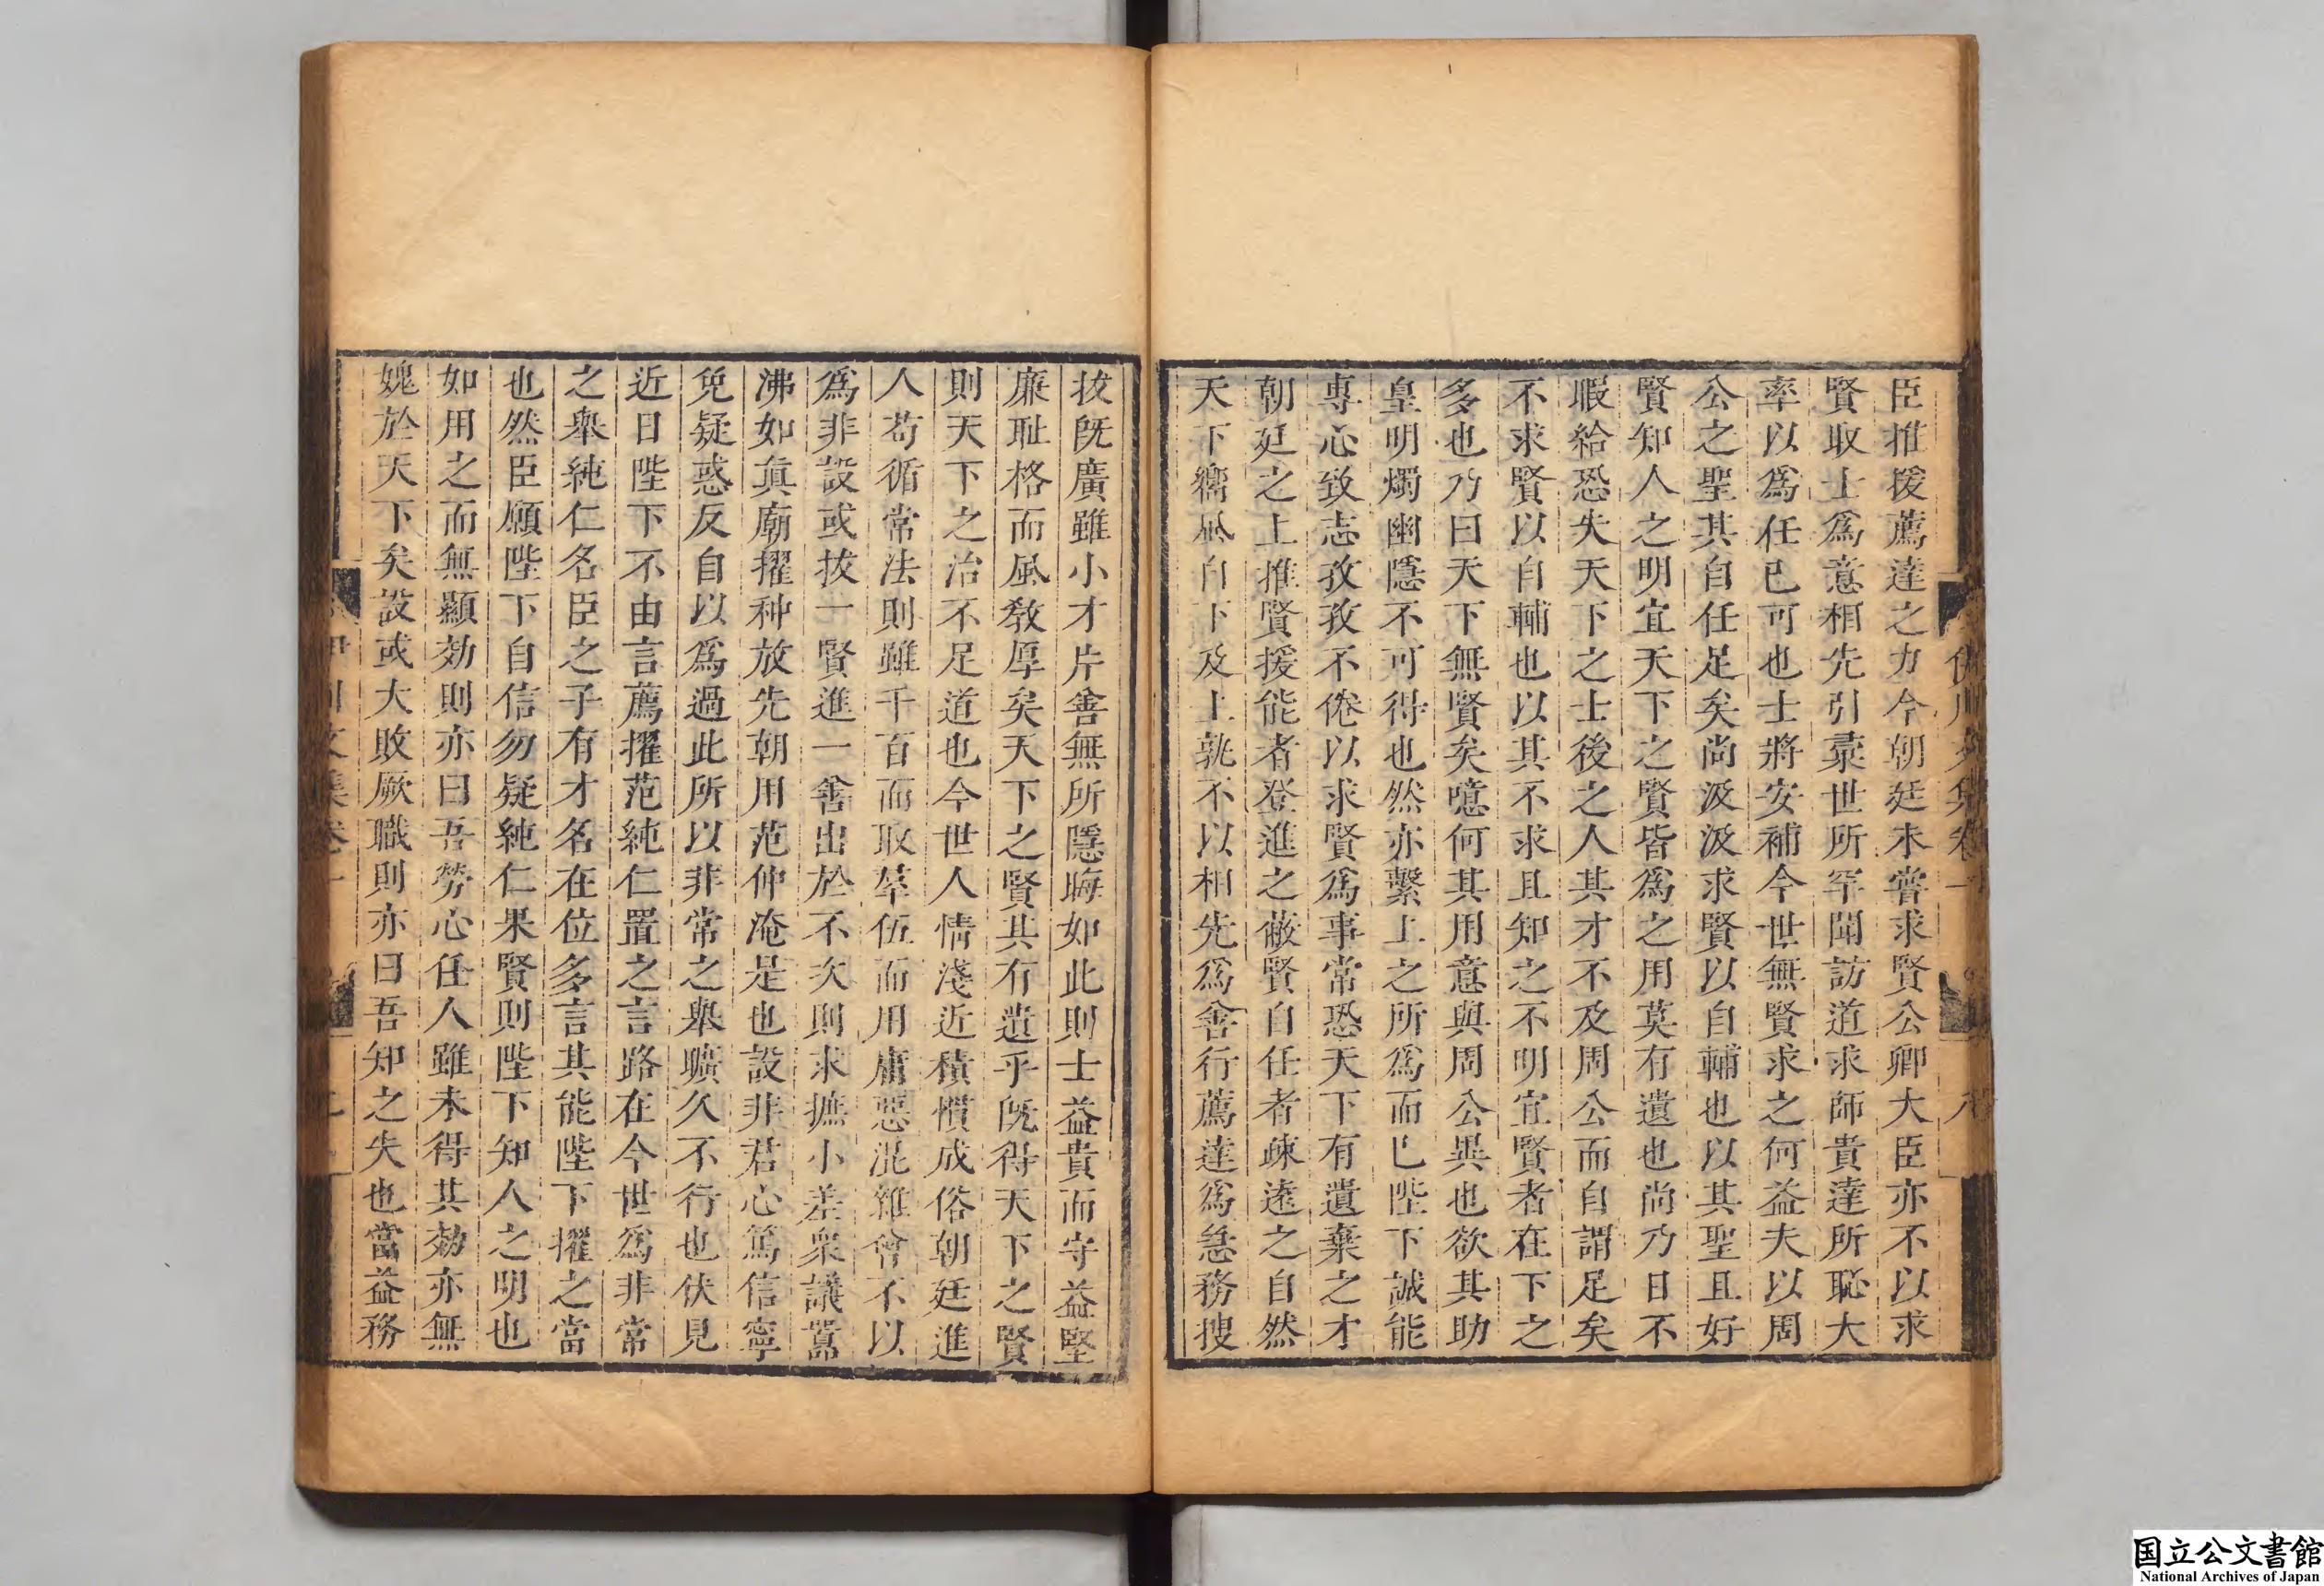 臣推援薦達之力今朝廷未嘗求賢公卿大臣亦不以求
賢取士爲意相先引彙世所罕聞訪道求師貴達所恥大
率以爲任已可也士將安補今世無賢求之何益夫以周
公之聖其自任足矣尚汲汲求賢以自輔也以其聖且好
賢知人之明宜天下之賢皆爲之用莫有遺也尚乃日不
暇給恐失天下之士後之人其才不及周公而自謂足矣
不求賢以自輔也以其不求且知之不明宜賢者在下之
多也乃曰天下無賢矣噫何其用意與周公異也欲其助
皇明燭幽隱不可得也然亦繫上之所爲而已陛下誠能
專心致志孜孜不倦以求賢爲事常恐天下有遺棄之才
朝廷之上推賢援能者登進之蔽賢自任者疎遠之自然
天下嚮風自下及上孰不以相先爲善行薦達爲急務搜
拔旣廣雖小才片善無所隱晦如此則士益貴而守益堅
廉耻格而風教厚矣天下之賢其有遺乎旣得天下之賢
則天下之治不足道也今世人情淺近積慣成俗朝廷進
人苟循常法則雖千百而取羣伍而用庸惡混雜會不以
爲非設或拔一賢進一善出於不次則求摭小差衆議囂
沸如眞廟擢种放先朝用范仲淹是也設非君心篤信寧
免疑惑反自以爲過此所以非常之舉曠久不行也伏見
近日陛下不由言薦擢范純仁置之言路在今世爲非常
之舉純仁名臣之子有才名在位多言其能陛下擢之當
也然臣願陛下自信勿疑純仁果賢則陛下知人之明也
如用之而無顯効則亦曰吾勞心任人雖未得其効亦無
媿於天下矣設或大敗厥職則亦曰吾知之失也當益務
国立公文書館
National Archives of Japan